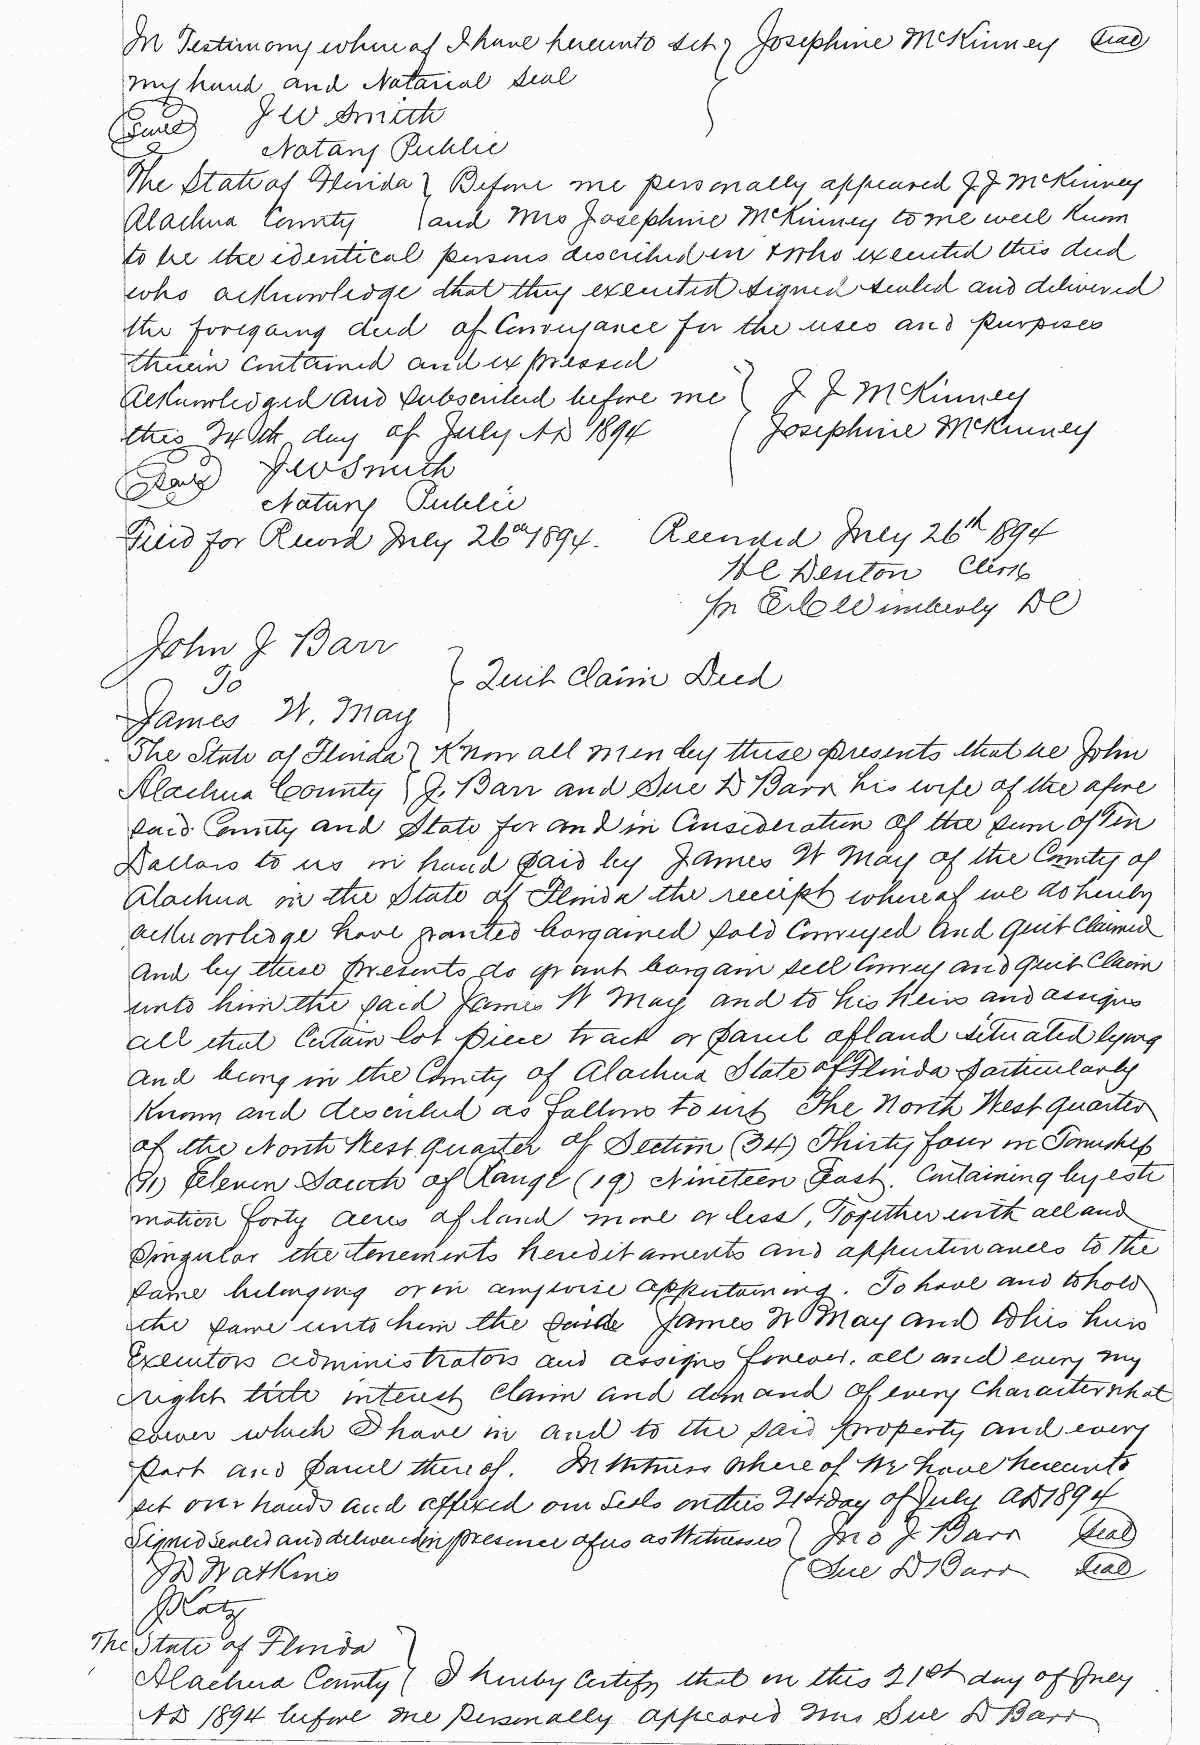 In Testimony whereof I have hereunto set } Josephine McKinney Seal
my hand and Notarial Seal
Seal J W Smith
Notary Public
The State of Florida } Before me personally appeared J J McKinney
Alachua County } and Mrs Josephine McKinney to me well Know
to be the identical persons described in & who executed this deed
who acknowledge that they executed signed sealed and delivered
the foregoing deed of Conveyance for the uses and purposes
therein contained and expressed
Acknowledged and subscribed before me } J J McKinney
this 24th day of July AD 1894 Josephine McKinney
Seal J W Smith
Notary Public
Filed for Record July 26th 1894. Recorded July 26th 1894
H C Denton Clerk
pr Wimberly DC
John J Barr
To } Quit Claim Deed
James W. May
The State of Florida } Know all men by these presents that we John
Alachua County } J. Barr and Sue D Barr his wife of the afore
said County and State for and in Consideration of the sum of Ten
Dollars to us in hand paid by James W May of the County of
Alachua in the State of Florida the receipt whereof we do hereby
acknowledge have granted bargained sold Conveyed and quit Claimed
and by these presents do grant bargain sell Convey and quit Claim
unto him the said James W May and to his heirs and assigns
all that Certain lot piece tract or parcel of land situated lying
and being in the County of Alachua State of Florida particularly
Known and described as follows to wit The North West quarter
of the North West quarter of Section (34) Thirty four in Township
(11) Eleven South of Range (19) Nineteen East. Containing by esti
mation forty acres of land more or less, Together with all and
singular the tenements hereditaments and appurtinances to the
same belonging or in anywise appertaining. To have and to hold
the same unto him the said James W May and to his heirs
Executors administrators and assigns forever. all and every my
right title interest claim and demand of every character what
soever which I have in and to the said property and every
part and parcel thereof. In Witness Whereof We have hereunto
set our hands and affixed our Seals on this 21st day of July AD 1894
Signed sealed and delivered in presence of us as Witnesses } Jno J Barr Seal
J D Watkins Sue D Barr Seal
J Katz
The State of Florida }
Alachua County } I hereby Certify that on this 21st day of July
AD 1894 before me personally appeared Mrs Sue D Barr